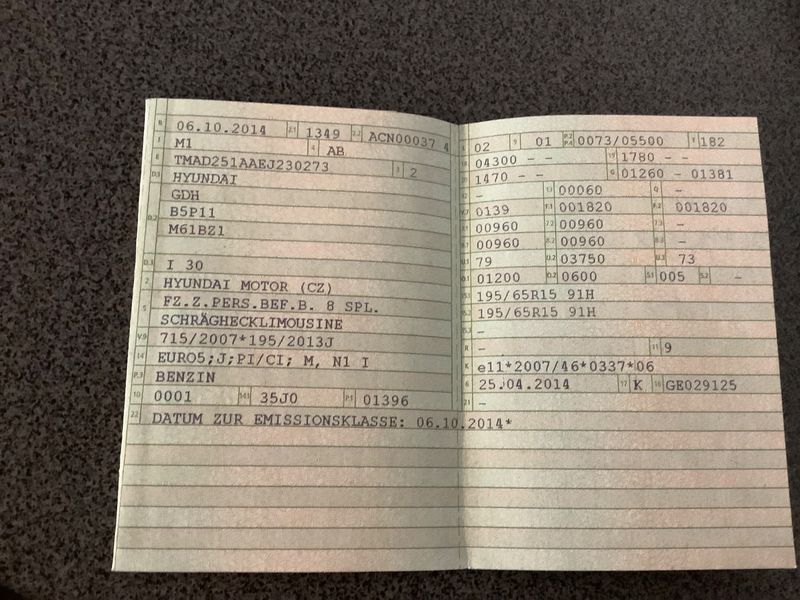 B 06.10.2014 2.1 1349 2.2 ACN00037 4
J M1 4 AB
E TMAD251AAEJ230273 3 2
D.1 HYUNDAI
GDH
D.2 B5P11
M61BZ1
D.3 I 30
2 HYUNDAI MOTOR (CZ)
5 FZ.Z.PERS.BEF.B. 8 SPL.
SCHRÄGHECKLIMOUSINE
V.9 715/2007*195/2013J
14 EURO5;J;PI/CI; M, N1 I
P.3 BENZIN
10 0001 14.1 35J0 P.1 01396
22 DATUM ZUR EMISSIONSKLASSE: 06.10.2014*
02 9 01 P.2 P.4 0073/05500 T 182
18 04300 – – 19 1780 – –
1470 – – G 01260 – 01381
– 13 00060 Q –
V.7 0139 F.1 001820 F.2 001820
00960 7.2 00960 7.3 –
00960 8.2 00960 8.3 –
U.1 79 U.2 03750 U.3 73
O.1 01200 O.2 0600 S.1 005 S.2 –
15.1 195/65R15 91H
15.2 195/65R15 91H
15.3 –
R – 11 9
K e11*2007/46*0337*06
6 25.04.2014 17 K 16 GE029125
21 –